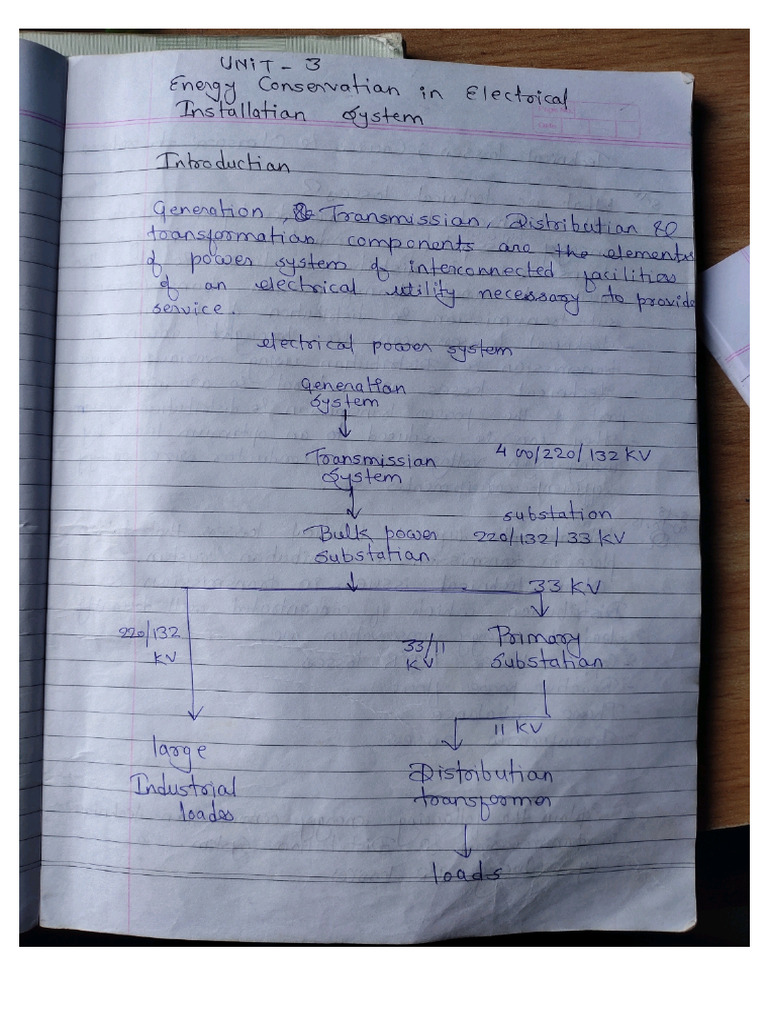 UNIT - 3
Energy Conservation in Electrical
Installation System
Introduction
Generation, & Transmission, Distribution &
transformation components are the elements
of power system of interconnected facilities
of an electrical utility necessary to provide
service.
electrical power system
Generation
System
Transmission 400/220/132 KV
System
substation
Bulk power 220/132/33 KV
substation
33 KV
220/132
KV
33/11
KV
Primary
substation
11 KV
large
Industrial
loads
Distribution
transformer
loads